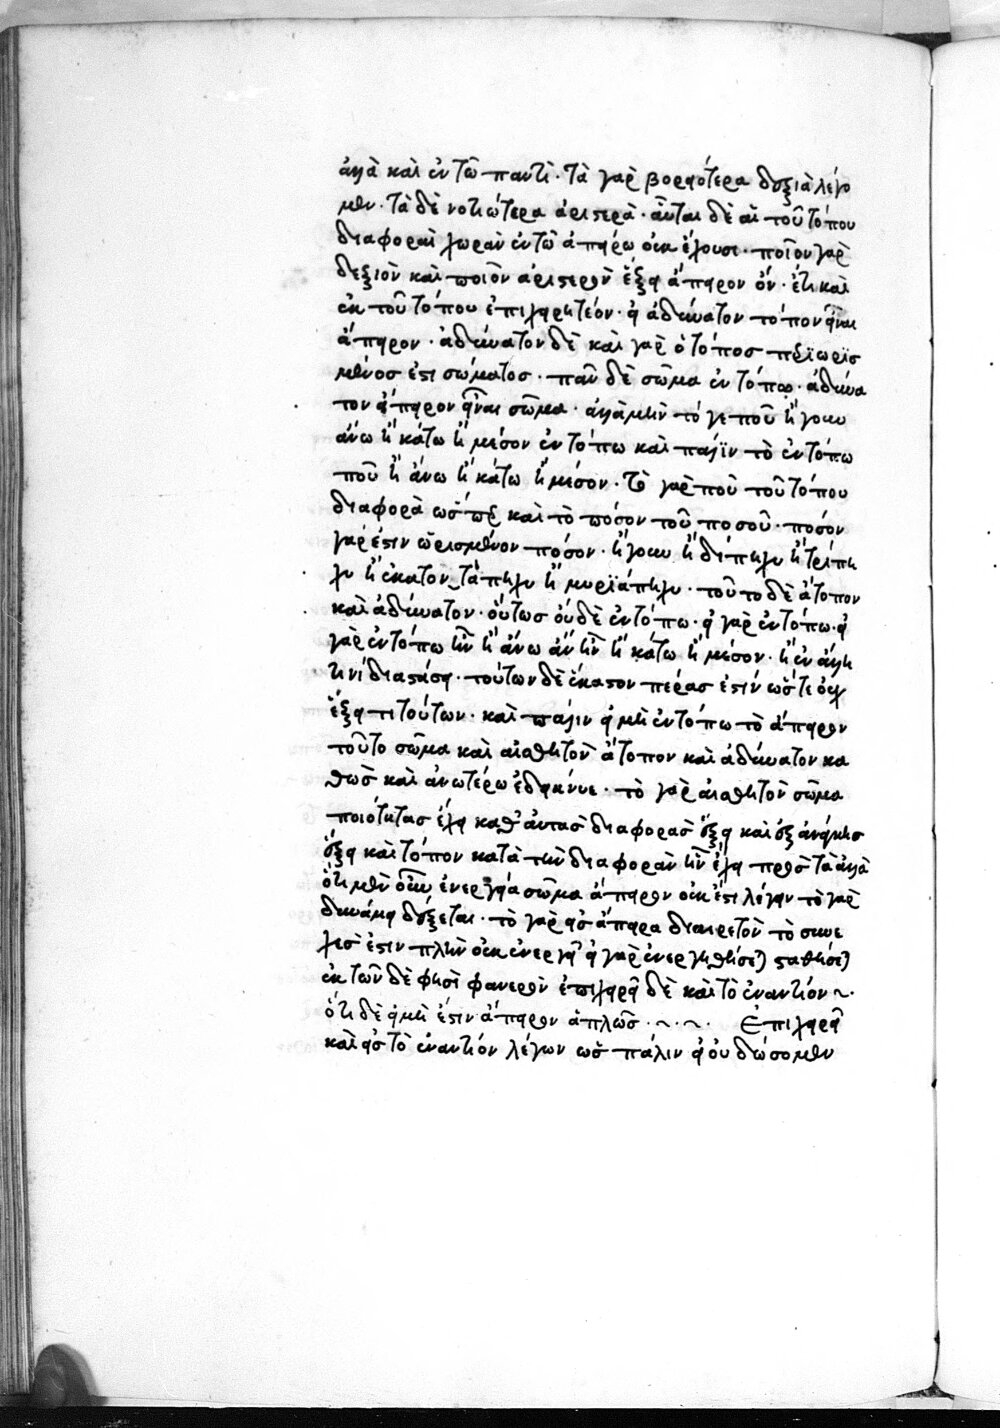 ἀλλὰ καὶ ἐν τῶ παντί· τὰ γὰρ βορειότερα δεξιὰ λέγο
μεν· τὰ δὲ νοτιώτερα ἀριστερὰ· αὗται δὲ αἱ τοῦ τόπου
διαφοραὶ χωρὰν ἐν τῶ ἀπείρω οὐκ ἔχουσι· ποῖον γὰρ
δεξιὸν καὶ ποιὸν ἀριστερὸν ἕξει ἄπειρον ὄν· ἔτι καὶ
ἐκ τοῦ τόπου ἐπιχειρητέον· εἰ ἀδύνατον τόπον εἶναι
ἄπειρον· ἀδύνατον δὲ καὶ γὰρ ὁ τόπος περϊωρϊσ
μένος ἐστι σώματος· πᾶν δὲ σῶμα ἐν τόπω· ἀδύνα
τον ἄπειρον εἶναι σῶμα· ἀλλὰ μὴν τό γε ποῦ ἤγουν
ἄνω ἢ κάτω ἢ μέσον ἐν τόπω καὶ πάλϊν τὸ ἐν τόπω
ποῦ ἢ ἄνω ἢ κάτω ἢ μέσον· τὸ γὰρ ποῦ τοῦ τόπου
διαφορὰ ὥσπερ καὶ τὸ πόσον τοῦ ποσοῦ· ποσόν
γάρ ἐστιν ὡρισμένον πόσον· ἤγουν ἢ δίπηχυ ἢ τρίπη
χυ ἢ ἑκατοντάπηχυ ἢ μυρϊάπηχυ· τοῦτο δὲ ἄτοπον
καὶ ἀδύνατον· οὕτως οὐδὲ ἐν τόπω· εἰ γὰρ ἐν τόπω· εἰ
γὰρ ἐν τόπω ἦν ἢ ἄνω ἂν ἦν ἢ κάτω ἢ μέσον· ἢ ἐν ἄλλη
τινί διαστάσει· τούτων δὲ ἕκαστον πέρας ἐστίν ὥστε οὐχ
ἕξει τι τούτων· καὶ πάλιν εἰ μὴ ἐν τόπω τὸ ἄπειρον
τοῦτο σῶμα καὶ αἰσθητὸν ἄτοπον καὶ ἀδύνατον κα
θὼς καὶ ἀνωτέρω ἐδείκνυε· τὸ γὰρ αἰσθητὸν σῶμα
ποιότητας ἔχει καθ' αὑτὰς διαφορὰς ἕξει καὶ ἐξ ἀνάγκης
ἕξει καὶ τόπον κατὰ τὴν διαφορὰν ἣν ἔχει πρὸς τὰ ἄλλα
ὅτι μὲν οὖν ἐνεργεία σῶμα ἄπειρον οὐκ ἔστι λέγειν τὸ γὰρ
δυνάμει δέξεται· τὸ γὰρ εἰς ἄπειρα διαιρετὸν τὸ συνε
χές ἐστιν πλὴν οὐκ ἐνεργεία εἰ γὰρ ἐνεργηθήσεται σταθήσεται
ἐκ τῶν δέ φησὶ φανερὸν ἐπιχειρεῖ δὲ καὶ τὸ ἐναντίον ~·
ὅτι δὲ εἰ μὴ ἔστιν ἄπειρον ἁπλῶς · ~ · ~ · Ἐπιχειρεῖ
καὶ εἰς τὸ ἐναντίον λέγων ὡς πάλιν εἰ οὐ δώσομεν